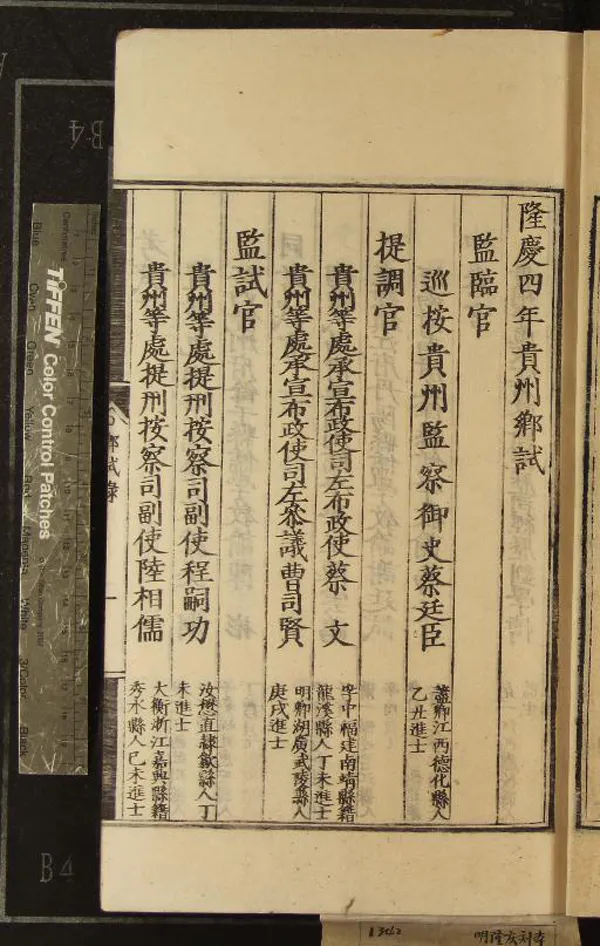 隆慶四年貴州鄉試
監臨官
巡按貴州監察御史蔡廷臣
藎卿江西德化縣人
乙丑進士
提調官
貴州等處承宣布政使司左布政使蔡文
孚中福建南靖縣籍
龍溪縣人丁未進士
貴州等處承宣布政使司左叅議曹司賢
明卿湖廣武陵縣人
庚戌進士
監試官
貴州等處提刑按察司副使程嗣功
汝懋直隸歙縣人丁
未進士
貴州等處提刑按察司副使陸相儒
大衡浙江嘉興縣籍
秀水縣人己未進士
鄉試錄
一
B4
B4
TIFFEN Color Control Patches
Blue
Cyan
Green
Yellow
Red
Magenta
White
3/Color
Black
明隆慶刻本